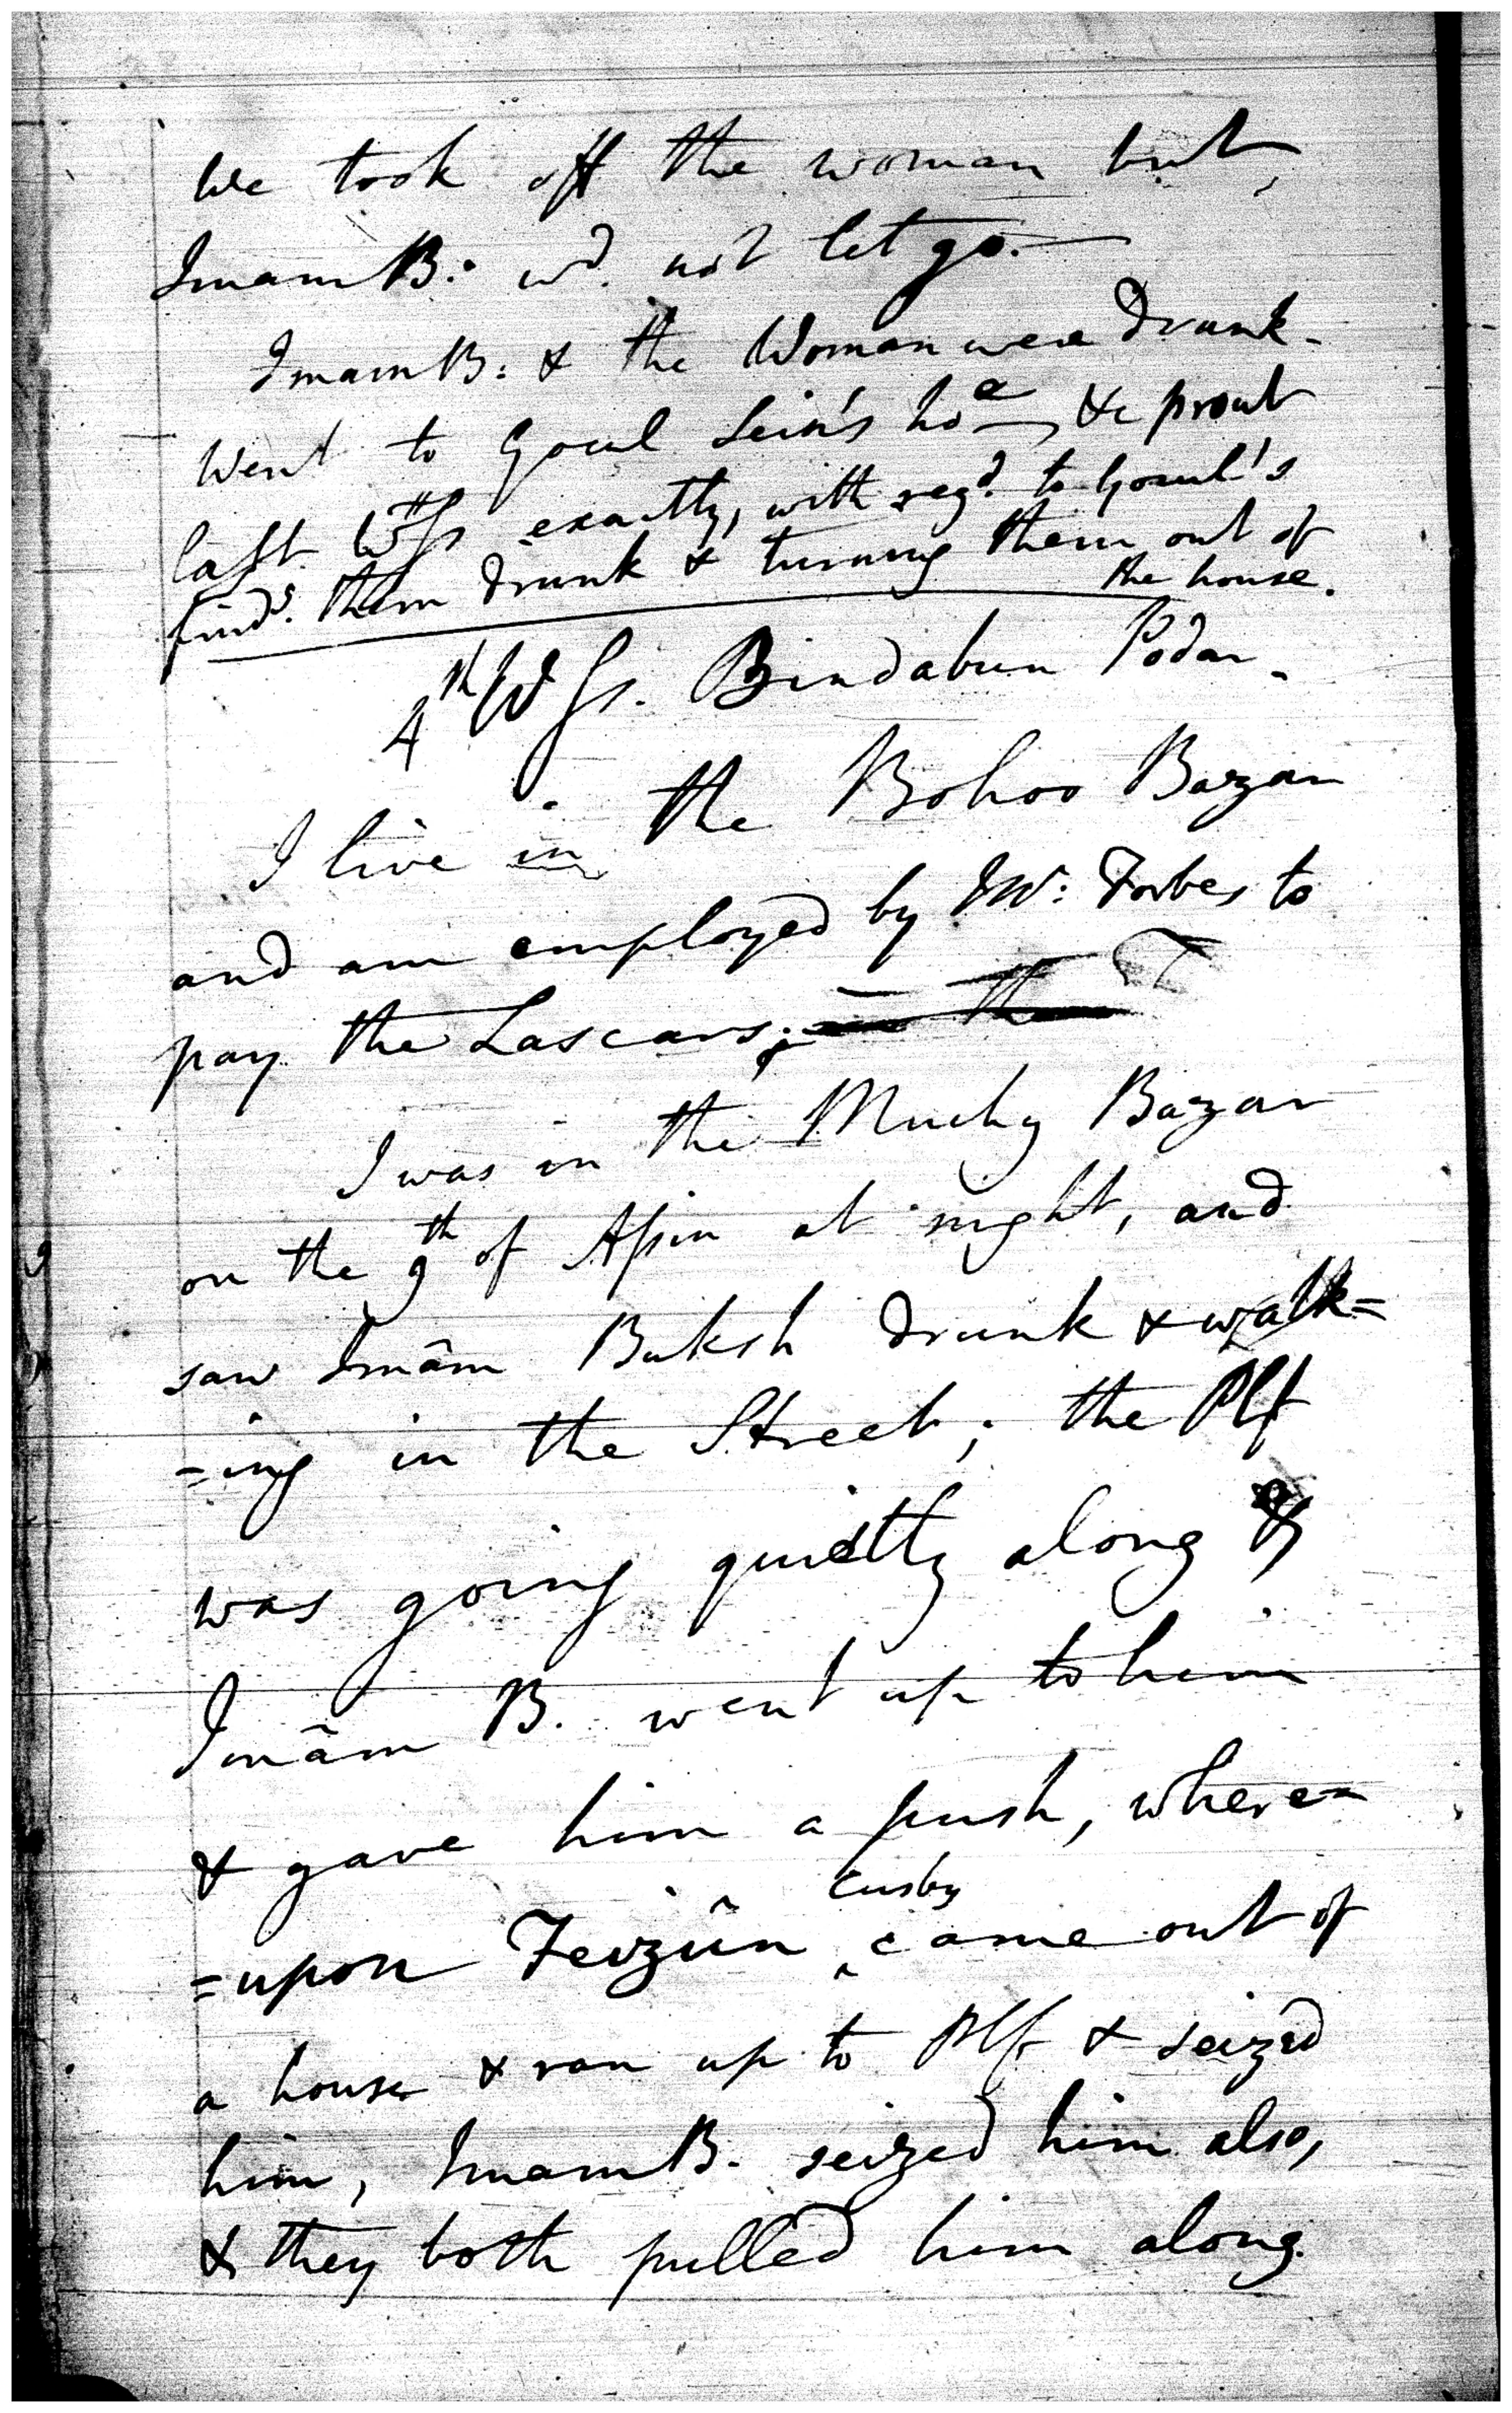 We took off the woman but,
Imam B: wd. not let go.—
Imam B: & the Woman were drunk-
Went to Gocul Sein's hoe &c prout
last Wtss exactly, with regd. to Gocul's
finds. them drunk & turning them out of
the house.
4th Wss. Bindabun Podar.
I live in the Bohoo Bazar
and am employed by Mr: Forbes to
pay the Lascars;
I was in the Muchy Bazar
on the 9th of Assin at night, and
saw Imâm Buksh drunk & walk=
=ing in the Street; the Plf
was going quietly along &
Imâm B. went up to him
& gave him a push, where=
=upon Feizûn Cusby came out of
a house & ran up to Plf & seized
him, Imam B. seized him also,
& they both pulled him along.